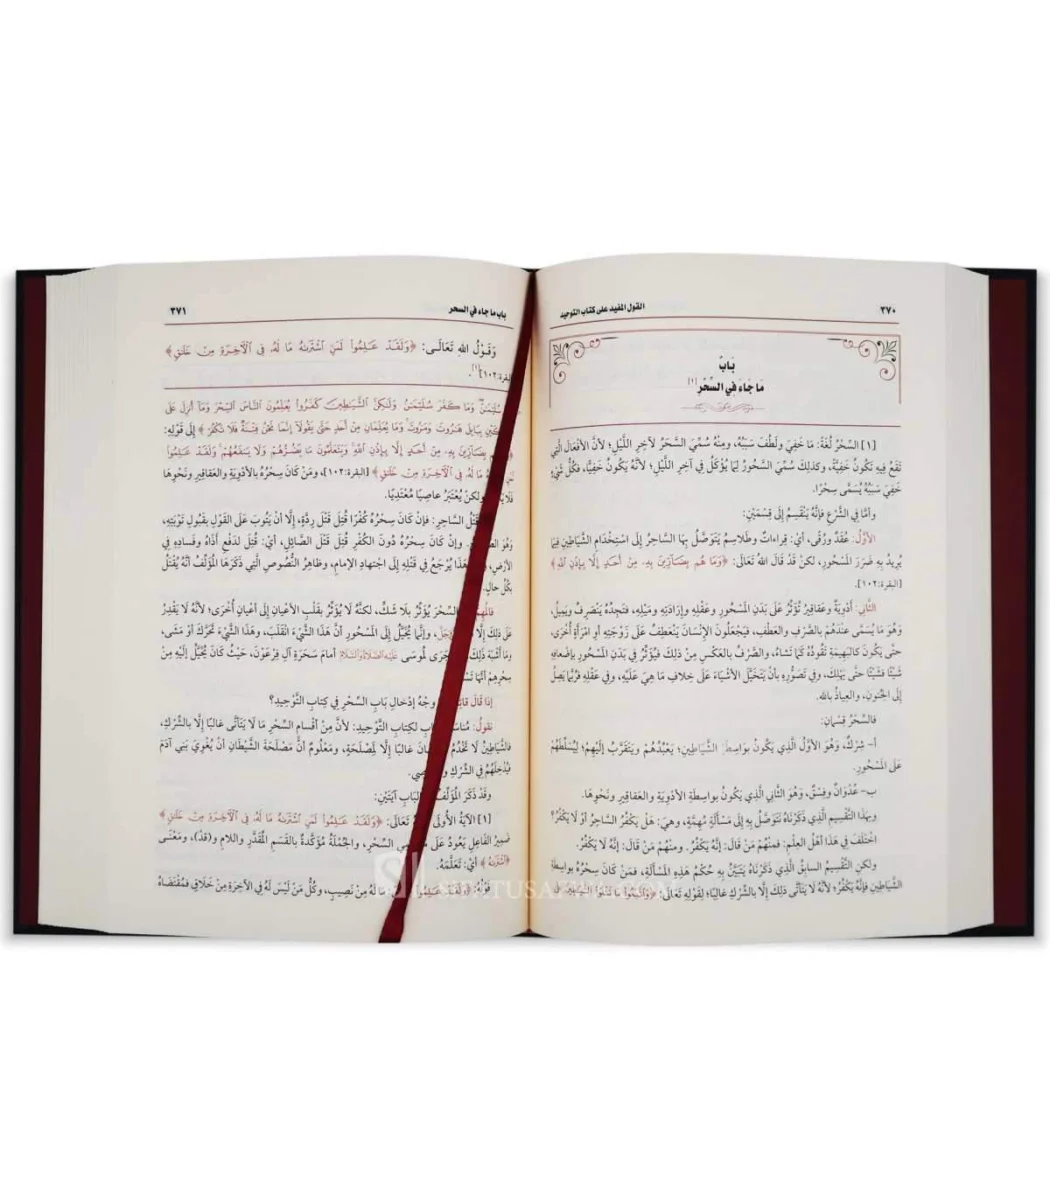 ٣٧٠
القول المفيد على كتاب التوحيد
بَابُ
مَا جَاءَ فِي السِّحْرِ [١]
[١] السِّحْرُ لُغَةً: مَا خَفِيَ وَلَطُفَ سَبَبُهُ، ومِنْهُ سُمِّيَ السَّحَرُ لآخِرِ اللَّيْلِ؛ لأنَّ الأَفْعَالَ الَّتِي
تَقَعُ فِيهِ تَكُونُ خَفِيَّةً، وكَذلِكَ سُمِّيَ السَّحُورُ لِمَا يُؤْكَلُ فِي آخِرِ اللَّيْلِ؛ لأَنَّهُ يَكُونُ خَفِيًّا، فكُلُّ شَيْءٍ
خَفِيَ سَبَبُهُ يُسَمَّى سِحْرًا.
وأمَّا فِي الشَّرْعِ فإنَّهُ يَنْقَسِمُ إِلَى قِسْمَيْنِ:
الأوَّلُ: عُقَدٌ ورُقًى، أيْ: قِراءاتٌ وطَلَاسِمُ يَتَوَصَّلُ بِهَا السَّاحِرُ إِلَى اسْتِخْدَامِ الشَّيَاطِينِ فِيمَا
يُرِيدُ بِهِ ضَرَرَ المَسْحُورِ، لكنْ قَدْ قَالَ اللهُ تَعَالَى: ﴿وَمَا هُم بِضَآرِّينَ بِهِۦ مِنْ أَحَدٍ إِلَّا بِإِذْنِ ٱللَّهِ﴾
[البقرة:١٠٢].
الثَّانِي: أدْوِيَةٌ وعَقاقِيرُ تُؤَثِّرُ عَلَى بَدَنِ المَسْحُورِ وعَقْلِهِ وإِرَادَتِهِ ومَيْلِهِ، فتَجِدُهُ يَنْصَرِفُ ويَمِيلُ،
وَهُوَ مَا يُسَمَّى عنْدَهُمْ بالصَّرْفِ والعَطْفِ، فيَجْعَلُونَ الإنْسَانَ يَنْعَطِفُ عَلَى زَوْجَتِهِ أوِ امْرَأةٍ أُخْرَى،
حتَّى يَكُونَ كالبَهِيمَةِ تَقُودُهُ كَمَا تَشَاءُ، والصَّرْفُ بالعَكْسِ مِنْ ذلِكَ، فيُؤَثِّرُ فِي بَدَنِ المَسْحُورِ بإِضْعافِهِ
شَيْئًا فشَيْئًا حتَّى يَهْلِكَ، وفِي تَصَوُّرِهِ بأنْ يَتَخَيَّلَ الأَشْيَاءَ عَلَى خِلافِ مَا هِيَ عَلَيْهِ، وفِي عَقْلِهِ فرُبَّما يَصِلُ
إِلَى الجُنُونِ، والعِياذُ بالله.
فالسِّحْرُ قِسْمَانِ:
أ- شِرْكٌ، وَهُوَ الأَوَّلُ الَّذِي يَكُونُ بوَاسِطَةِ الشَّيَاطِينِ؛ يَعْبُدُهُمْ ويَتَقَرَّبُ إِلَيْهِمْ؛ ليُسَلِّطَهُمْ
عَلَى المَسْحُورِ.
ب- عُدْوَانٌ وفِسْقٌ، وَهُوَ الثَّانِي الَّذِي يَكُونُ بوَاسِطَةِ الأَدْوِيَةِ والعَقاقِيرِ ونَحْوِهَا.
وبهَذا التَّقْسِيمِ الَّذِي ذَكَرْنَاهُ نَتَوَصَّلُ بِهِ إِلَى مَسْأَلَةٍ مُهِمَّةٍ، وهِيَ: هَلْ يَكْفُرُ السَّاحِرُ أَوْ لَا يَكْفُرُ؟
اخْتَلَفَ فِي هَذَا أهْلُ العِلْمِ: فمِنْهُمْ مَنْ قَالَ: إنَّهُ يَكْفُرُ. ومنْهُمْ مَنْ قَالَ: إنَّهُ لَا يَكْفُرُ.
ولكنِ التَّقْسِيمُ السَّابِقُ الَّذِي ذَكَرْنَاهُ يَتَبَيَّنُ بِهِ حُكْمُ هَذِهِ المَسْأَلَةِ، فمَنْ كَانَ سِحْرُهُ بواسِطَةِ
الشَّيَاطِينِ فإنَّهُ يَكْفُرُ؛ لأنَّهُ لَا يَتَأَتَّى ذَلِكَ إلَّا بالشِّرْكِ غالبًا؛ لِقَوْلِهِ تَعَالَى: ﴿وَٱتَّبَعُوا۟ مَا تَتْلُوا۟ ٱلشَّيَـٰطِينُ
باب ما جاء في السحر
٣٧١
وَقَوْلُ اللهِ تَعَالَى: ﴿وَلَقَدْ عَلِمُوا۟ لَمَنِ ٱشْتَرَىٰهُ مَا لَهُۥ فِى ٱلْـَٔاخِرَةِ مِنْ خَلَـٰقٍ﴾
[البقرة:١٠٢][١].
سُلَيْمَـٰنَ وَمَا كَفَرَ سُلَيْمَـٰنُ وَلَـٰكِنَّ ٱلشَّيَـٰطِينَ كَفَرُوا۟ يُعَلِّمُونَ ٱلنَّاسَ ٱلسِّحْرَ وَمَآ أُنزِلَ عَلَى
بِبَابِلَ هَـٰرُوتَ وَمَـٰرُوتَ وَمَا يُعَلِّمَانِ مِنْ أَحَدٍ حَتَّىٰ يَقُولَآ إِنَّمَا نَحْنُ فِتْنَةٌ فَلَا تَكْفُرْ﴾ إِلَى قَوْلِهِ:
بِضَآرِّينَ بِهِۦ مِنْ أَحَدٍ إِلَّا بِإِذْنِ ٱللَّهِ وَيَتَعَلَّمُونَ مَا يَضُرُّهُمْ وَلَا يَنفَعُهُمْ وَلَقَدْ عَلِمُوا۟
مَا لَهُۥ فِى ٱلْـَٔاخِرَةِ مِنْ خَلَـٰقٍ﴾ [البقرة:١٠٢]، ومَنْ كَانَ سِحْرُهُ بالأَدْوِيَةِ والعَقاقِيرِ ونَحْوِهَا
فَلَا ولكنْ يُعْتَبَرُ عاصِيًا مُعْتَدِيًا.
قَتْلُ السَّاحِرِ: فإنْ كَانَ سِحْرُهُ كُفْرًا قُتِلَ قَتْلَ رِدَّةٍ، إلَّا أنْ يَتُوبَ عَلَى القَوْلِ بقَبُولِ تَوْبَتِهِ،
وَهُوَ وإنْ كَانَ سِحْرُهُ دُونَ الكُفْرِ قُتِلَ قَتْلَ الصَّائِلِ، أيْ: قُتِلَ لدَفْعِ أذَاهُ وفَسادِهِ فِي
الأَرْضِ، يُرْجَعُ فِي قَتْلِهِ إِلَى اجْتِهادِ الإمَامِ، وظَاهِرُ النُّصُوصِ الَّتِي ذَكَرَهَا المُؤَلِّفُ أنَّهُ يُقْتَلُ
بكُلِّ حالٍ.
السِّحْرَ يُؤَثِّرُ بلَا شَكٍّ، لكنَّهُ لَا يُؤَثِّرُ بقَلْبِ الأعْيَانِ إِلَى أعْيَانٍ أُخْرَى؛ لأنَّهُ لَا يَقْدِرُ
عَلَى ذَلِكَ إلَّا وإنَّما يُخَيَّلُ إِلَى المَسْحُورِ أنَّ هَذَا الشَّيْءَ انْقَلَبَ، وهَذا الشَّيْءَ تَحَرَّكَ أَوْ مَشَى،
ومَا أشْبَهَ ذَلِكَ جَرَى لِمُوسَى عَلَيْهِ ٱلصَّلَاةُ وَٱلسَّلَامُ أمامَ سَحَرَةِ آلِ فِرْعَوْنَ، حَيْثُ كَانَ يُخَيَّلُ إِلَيْهِ مِنْ
سِحْرِهِمْ أنَّها
إذا قَالَ وَجْهُ إدْخَالِ بَابِ السِّحْرِ فِي كِتَابِ التَّوْحِيدِ؟
نقُولُ: لكِتَابِ التَّوْحِيدِ: لأنَّ مِنْ أقْسَامِ السِّحْرِ مَا لَا يَتَأَتَّى غالبًا إلَّا بالشِّرْكِ،
فالشَّيَاطِينُ لَا تَخْدُمُ غالبًا إلَّا لِمَصْلَحَةٍ، ومَعْلُومٌ أنَّ مَصْلَحَةَ الشَّيْطَانِ أنْ يُغْوِيَ بَنِي آدَمَ
فيُدْخِلَهُمْ فِي الشِّرْكِ
وقَدْ ذَكَرَ المُؤَلِّفُ البَابِ آيَتَيْنِ:
[١] الآيَةُ الأُولَى تَعَالَى: ﴿وَلَقَدْ عَلِمُوا۟ لَمَنِ ٱشْتَرَىٰهُ مَا لَهُۥ فِى ٱلْـَٔاخِرَةِ مِنْ خَلَـٰقٍ﴾
ضَمِيرُ الفَاعِلِ يَعُودُ عَلَى السِّحْرِ، والجُمْلَةُ مُؤَكَّدَةٌ بالقَسَمِ المُقَدَّرِ واللامِ و(قد)، ومَعْنَى
﴿ٱشْتَرَىٰهُ﴾ أيْ: تَعَلَّمَهُ.
قَوْلُهُ: مَا لَهُ مِنْ نَصِيبٍ، وكُلُّ مَنْ لَيْسَ لَهُ فِي الآخِرَةِ مِنْ خَلَاقٍ فمُقْتَضَاهُ